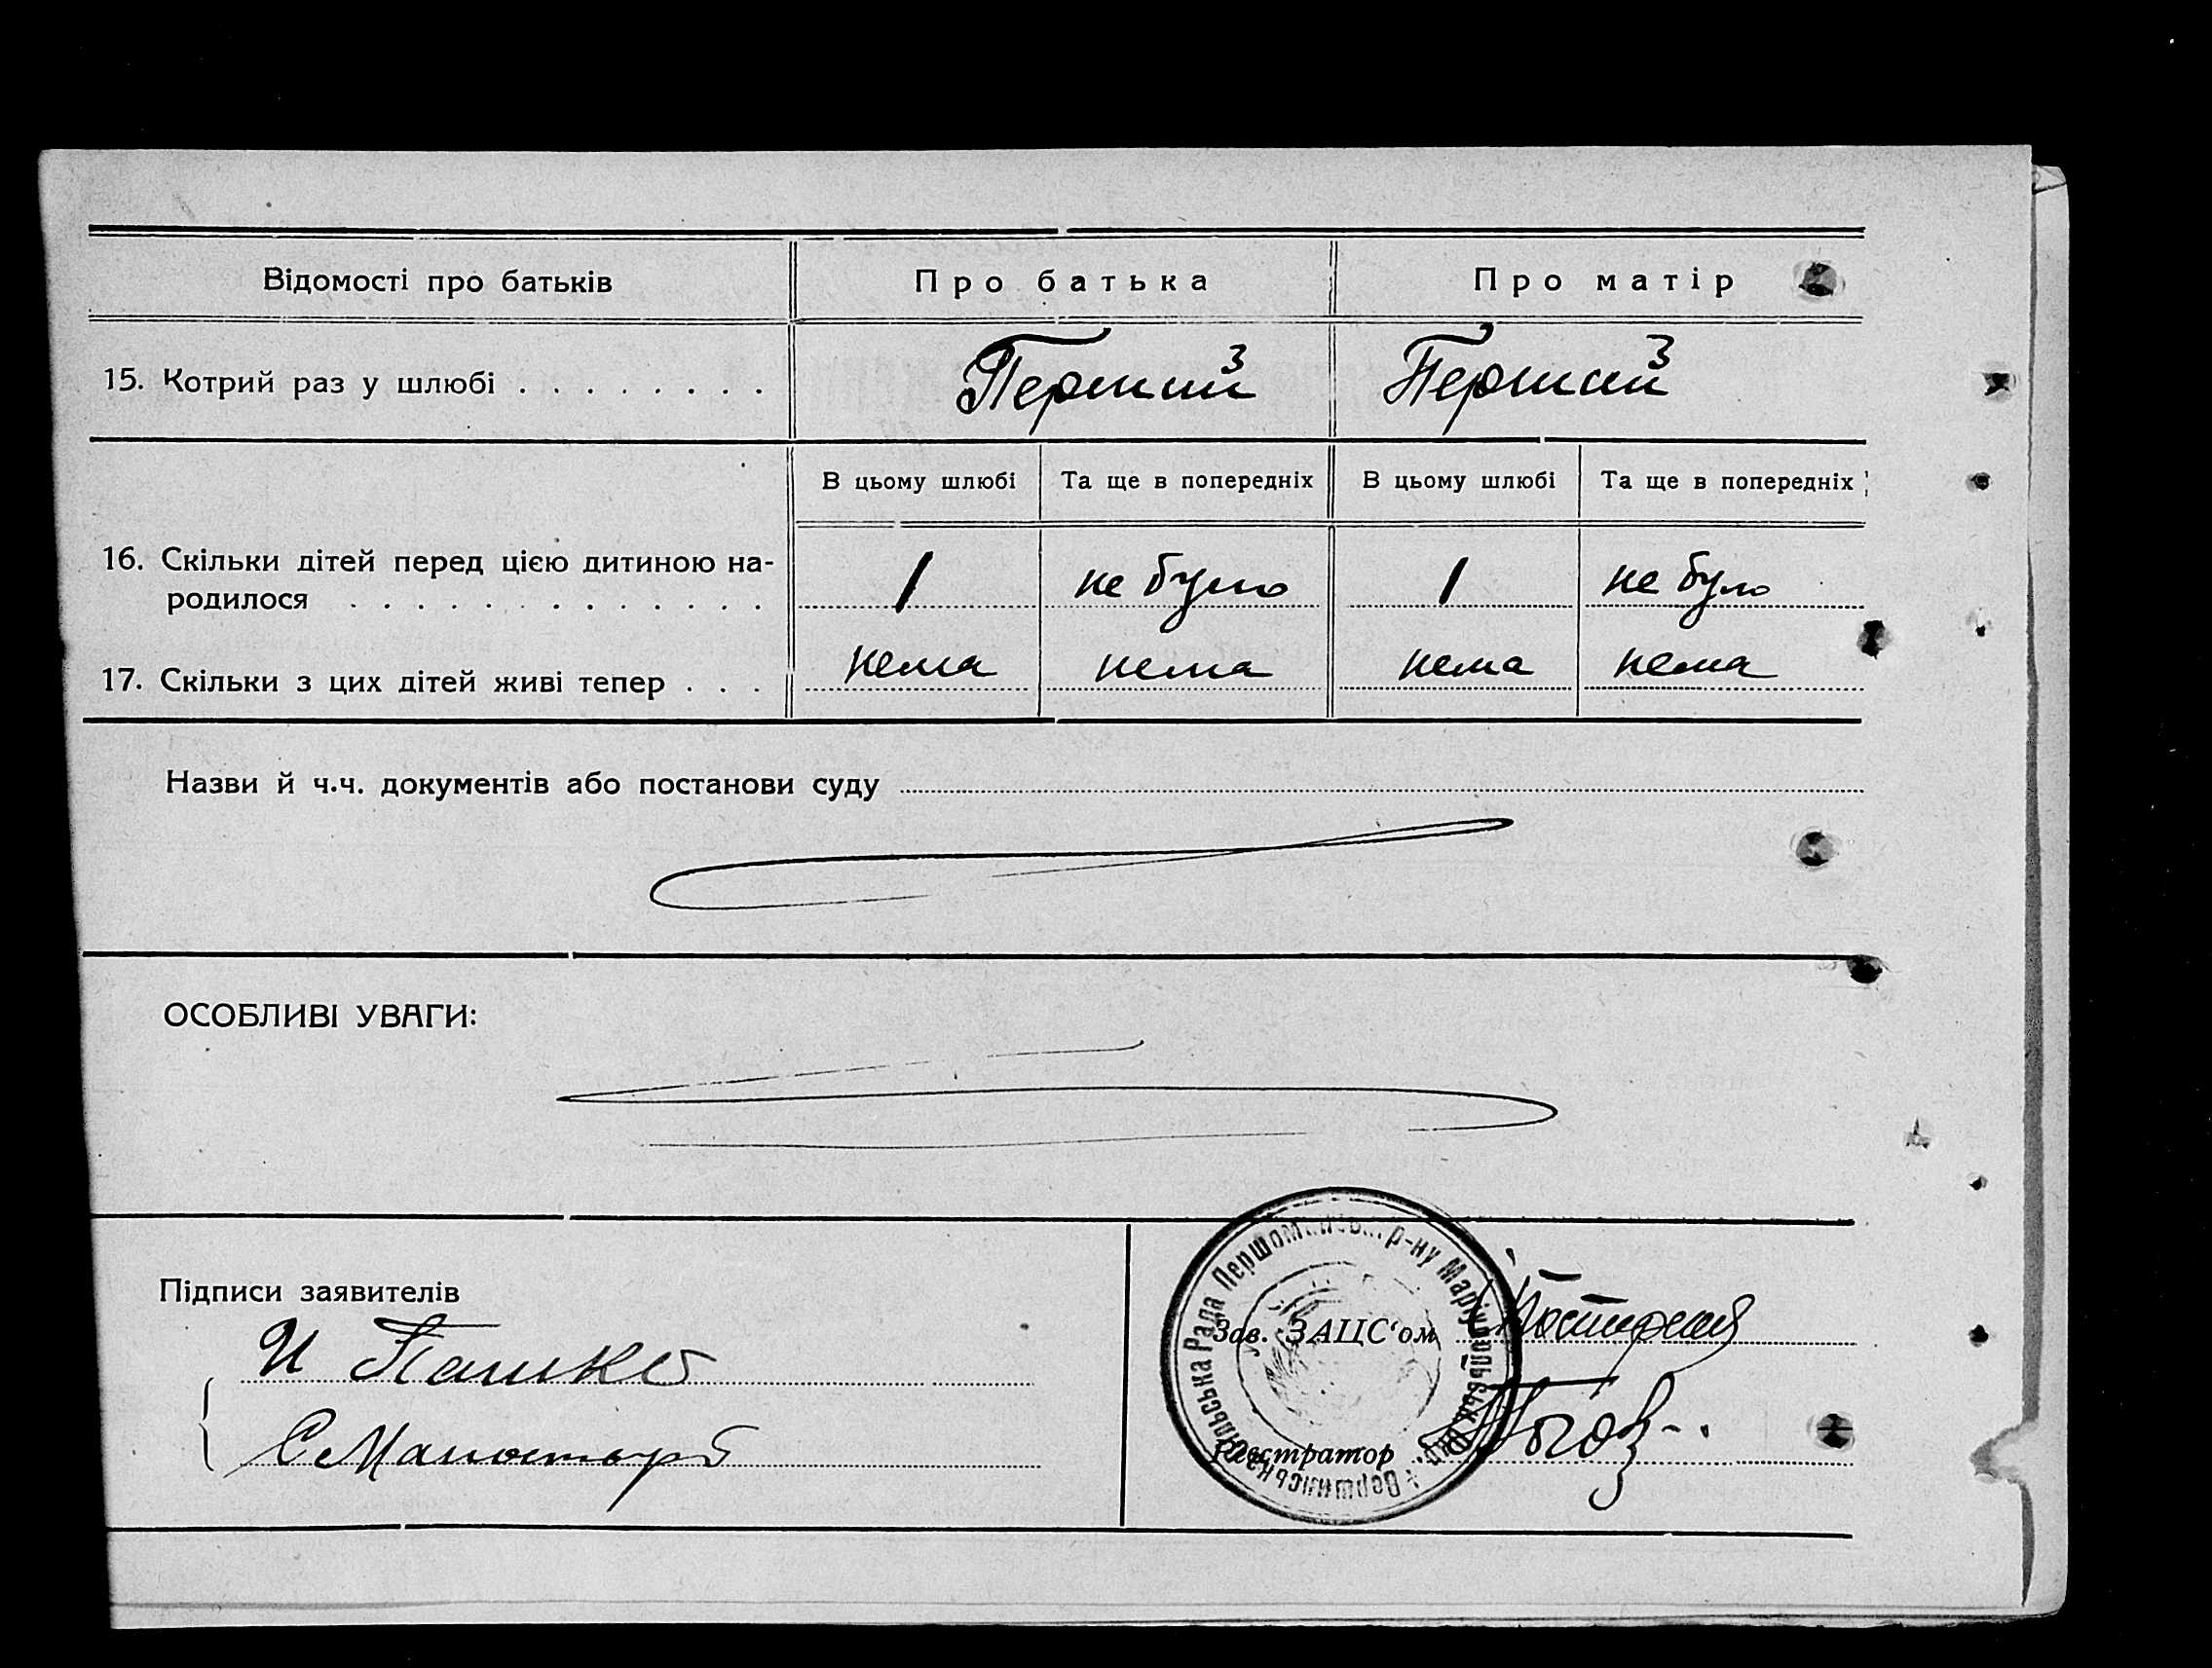 Відомості про батьків Про батька Про матір
15. Котрий раз у шлюбі . . . . . . . . Перший Перший
В цьому шлюбі Та ще в попередніх В цьому шлюбі Та ще в попередніх
16. Скільки дітей перед цією дитиною на-
родилося . . . . . . . . . . . . . 1 не було 1 не було
17. Скільки з цих дітей живі тепер . . . нема нема нема нема
Назви й ч.ч. документів або постанови суду
ОСОБЛИВІ УВАГИ:
Підписи заявителів
И Пашке
Зав. ЗАЦС'ом
Реєстратор
Вершинська Сільська Рада Першом р-ну Маріупольськ